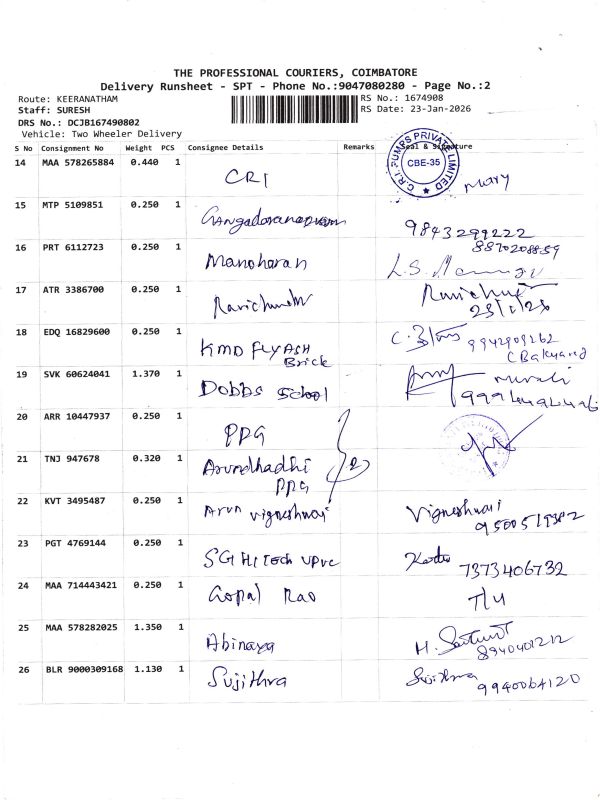 THE PROFESSIONAL COURIERS, COIMBATORE
Delivery Runsheet - SPT - Phone No.:9047080280 - Page No.:2
Route: KEERANATHAM
RS No.: 1674908
Staff: SURESH
RS Date: 23-Jan-2026
DRS No.: DCJB167490802
Vehicle: Two Wheeler Delivery
S No Consignment No Weight PCS Consignee Details Remarks Seal & Signature
14 MAA 578265884 0.440 1 CRI Mary
C.R.I. PUMPS PRIVATE LIMITED
CBE-35
15 MTP 5109851 0.250 1 9843299222
8870208859
16 PRT 6112723 0.250 1 Manoharan
17 ATR 3386700 0.250 1 Ravichandr
23/1/26
18 EDQ 16829600 0.250 1 KMD FLYASH Brick 9942909262
19 SVK 60624041 1.370 1 Dobbs School murali
20 ARR 10447937 0.250 1 PPG
21 TNJ 947678 0.320 1 Arundhadhi PPG 2
22 KVT 3495487 0.250 1 Arun vigneshwai Vigneshwari
23 PGT 4769144 0.250 1 SG Hitech UPVC 7373406732
24 MAA 714443421 0.250 1 Gopal Rao T/U
25 MAA 578282025 1.350 1 Abinaya 8940401212
26 BLR 9000309168 1.130 1 Sujithra 9940064120